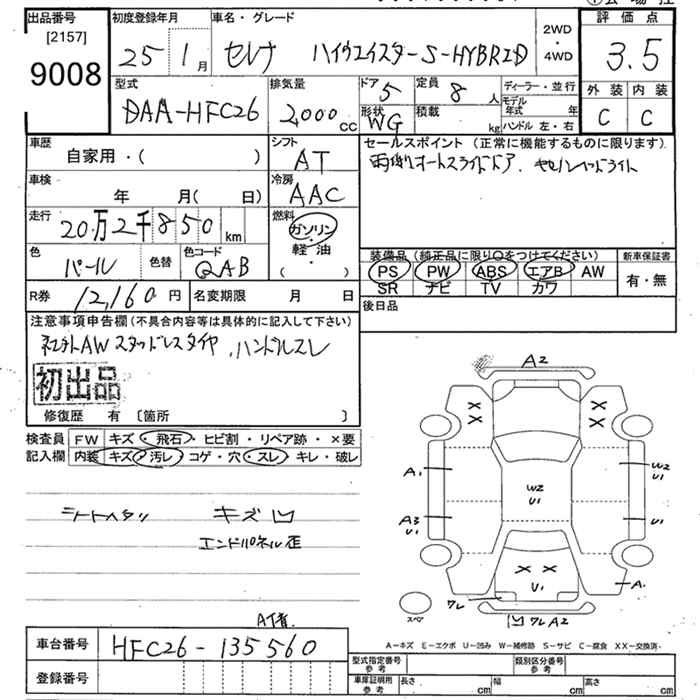 出品番号
[2157]
9008
初度登録年月
25 1月
車名・グレード
セレナ ハイウェイスターS-HYBRID
2WD
・
4WD
評価点
3.5
外装 内装
C C
型式
DAA-HFC26
排気量
2,000 cc
ドア 5
形状 WG
定員 8 人
積載 kg
ディーラー・並行
モデル年式 年
ハンドル 左・右
車歴
自家用・( )
シフト
AT
セールスポイント (正常に機能するものに限ります)
両側オートスライドドア、
車検
年 月( 日)
冷房
AAC
走行
20万2千850 km
燃料
ガソリン
・
軽油
・
( )
色
パール
色替
色コード
QAB
装備品 (純正品に限り〇をつけてください)
PS PW ABS エアB AW
SR ナビ TV カワ
新車保証書
有・無
R券 12,160円
名変期限 月 日
後日品
注意事項申告欄(不具合内容等は具体的に記入して下さい)
社外AWスタッドレスタイヤ、ハンドルスレ
初出品
修復歴 有 〔箇所 〕
検査員記入欄
FW キズ・飛石・ヒビ割・リペア跡・×要
内装 キズ・汚レ・コゲ・穴・スレ・キレ・破レ
シートヘタリ キズ凹
エンドパネル歪
A2
A1
W2
U1
W2
U1
A3
U1
A1
U1
ワレ
凹ワレA2
スペア
A―キズ E―エクボ U―凹み W―補修跡 S―サビ C―腐食 XX―交換済
車台番号 HFC26-135560
登録番号
型式指定番号
参考
類別区分番号
参考
車庫証明用
参考
長さ cm 幅 cm 高さ cm